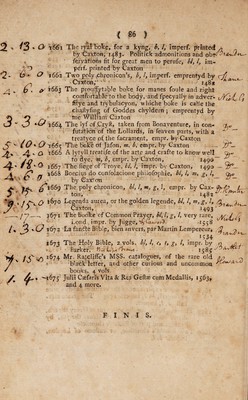 ( 86 )
2. 13. 0 1661 The rial boke, for a kyng, b, l, imperf. printed
by Caxton, 1483. Politick admonitions and ob-
servations fit for great men to peruse, bl, l, im-
perf. printed by Caxton,
2. 6. 0 1662 Two poly chronicon's, b, l, imperf. emprentyd by
Caxton, 1482
4. 6. 1663 The proufytable boke for manes soule and right
comfortable to the body, and specyally in adver-
sitye and trybulacyon, whiche boke is callte the
chastysing of Goddes chyldern; emprentyd by
me William Caxton
3. 3. 0 1664 The lyf of Cryst, taken from Bonaventure, in con-
futation of the Lollards, in seven parts, with a
treatyce of the sacrament, empr. by Caxton
5. 10. 0 1665 The boke of Jason, m. b, empr. by Caxton
2. 4. 0 1666 A lytyll tretise of the arte and crafte to knowe well
to dye, m. b, empr. by Caxton, 1490
4. 18. 0 1667 The siege of Troye, bl, l, impr. by Caxton, 1490
4. 6. 1668 Boecius de consolacione philosophie, bl, l, m, g, l,
by Caxton,
5. 15. 6 1669 The poly chronicon, bl, l, m, g, l, empr. by Cax-
ton, 1482
9. 15. 0 1670 Legenda aurea, or the golden legende, bl, l, m, g, l,
Caxton, 1493
1671 The booke of Common Prayer, bl, l, g, l, very rare,
Lond. impr. by Jugge,
1. 3. 0 1672 La saincte Bible, bien anvers, par Martin Lempereur,
1534
1673 The Holy Bible, 2 vols. bl, l, r, l, g, l, impr. by
Barker, 1585
7. 15. 0 1674 Mr. Ratcliffe's MSS. catalogues, of the rare old
black letter, and other curious and uncommon
books, 4 vols
1. 4. 1675 Julii Cæsaris Vita & Res Gestæ cum Medallis, 1563,
and 4 more.
F I N I S.